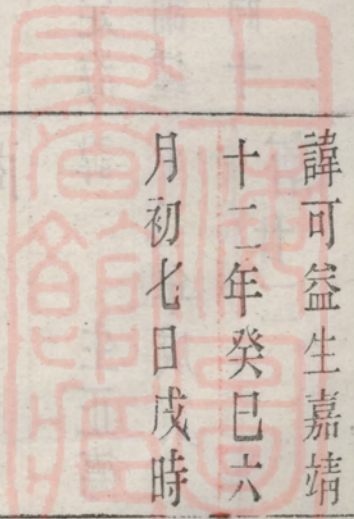 諱可益生嘉靖
十二年癸巳六
月初七日戌時